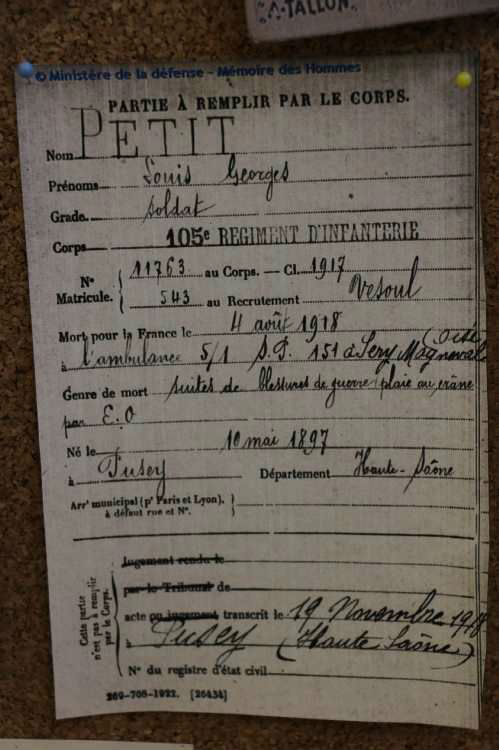 A-TALLON
© Ministère de la défense - Mémoire des Hommes
PARTIE À REMPLIR PAR LE CORPS.
Nom PETIT
Prénoms Louis Georges
Grade soldat
Corps 105e REGIMENT D'INFANTERIE
N° 11763 au Corps. — Cl. 1917
Matricule. 543 au Recrutement Vesoul
Mort pour la France le 4 août 1918
à l'ambulance 5/1 S.P. 151 à Séry Magneval (Oise)
Genre de mort suites de blessures de guerre plaie au crâne
par E.O
Né le 10 mai 1897
à Pusey Département Haute-Saône
Arrt municipal (pr Paris et Lyon),
à défaut rue et N°.
Cette partie n'est pas à remplir par le Corps.
Jugement rendu le
par le Tribunal de
acte ou jugement transcrit le 19 Novembre 1918
à Pusey (Haute Saône)
N° du registre d'état civil
269-708-1922. [26434]